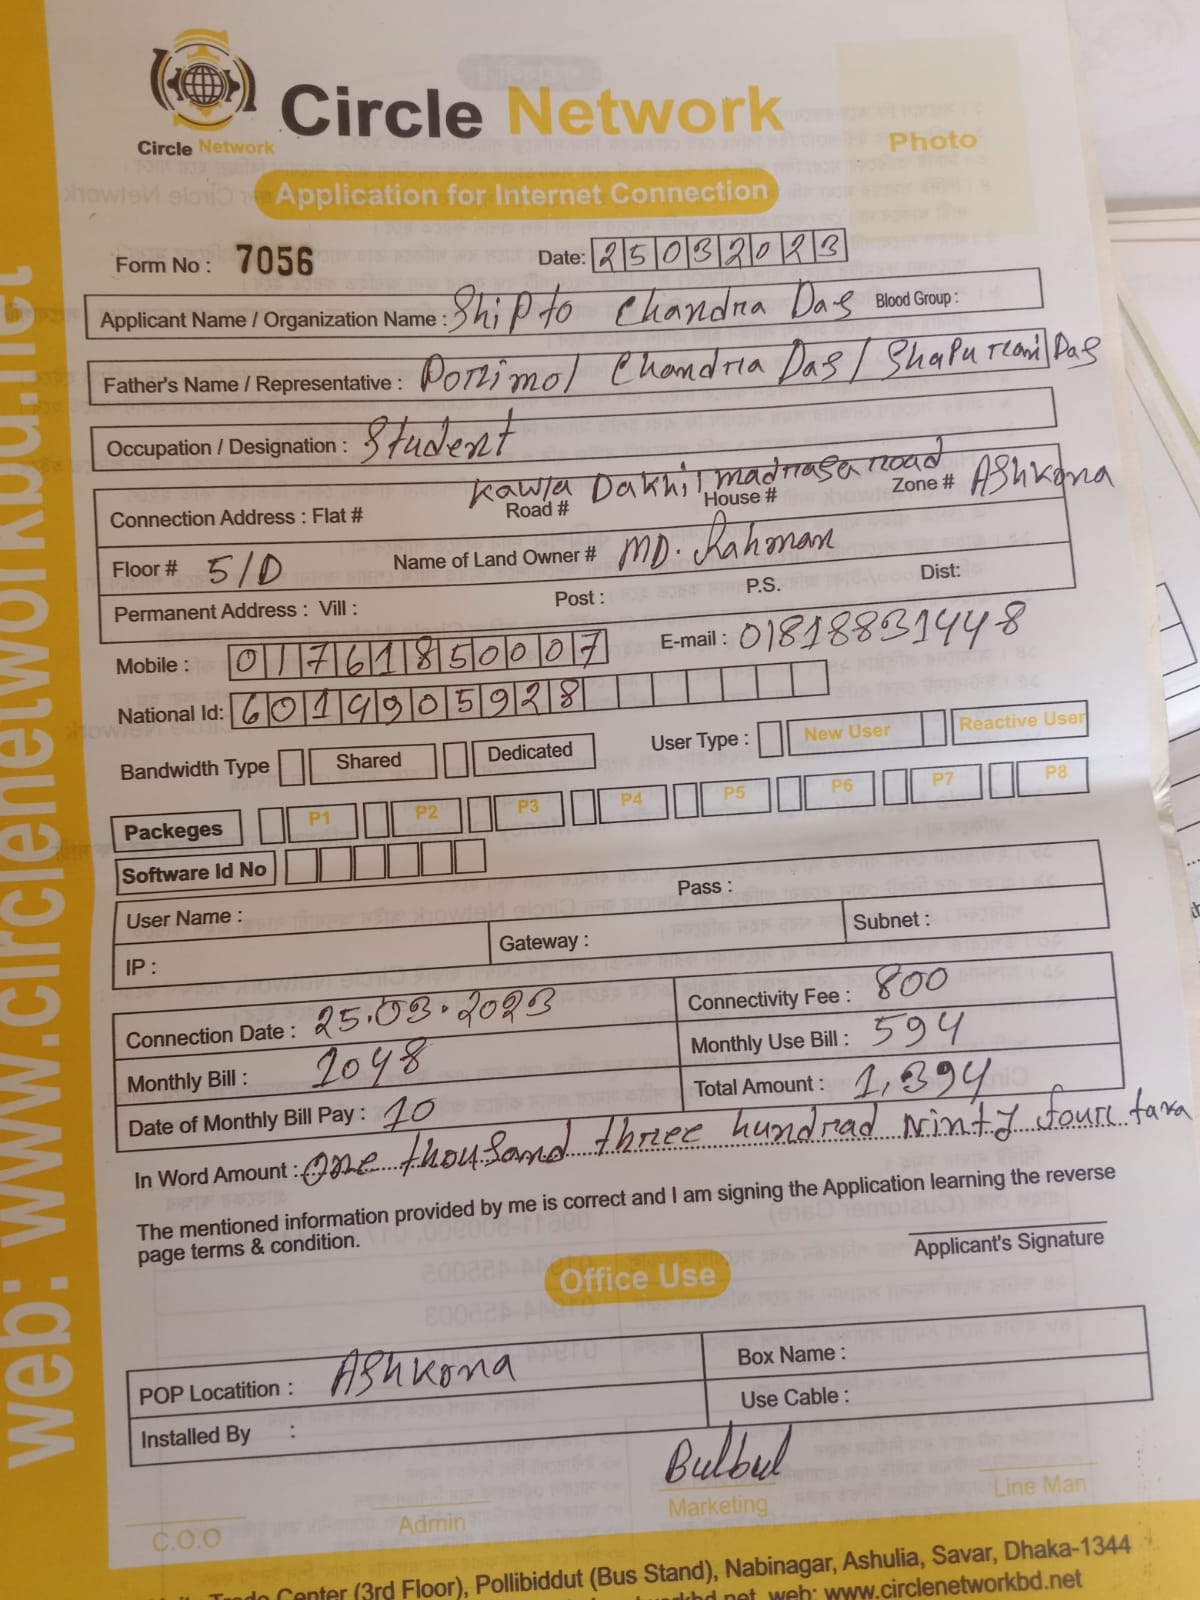 web: www.circlenetworkbd.net
Circle Network
Circle Network
Photo
Application for Internet Connection
Form No : 7056 Date: 25032023
Applicant Name / Organization Name : Shipto Chandra Das Blood Group :
Father's Name / Representative : Porimol Chandra Das / Shapu rani Das
Occupation / Designation : Student
Kawla Dakhil madrasa road Ashkona
Connection Address : Flat # Road # House # Zone #
Floor # 5/D Name of Land Owner # MD. Rahman
Permanent Address : Vill : Post : P.S. Dist:
Mobile : 01761850007 E-mail : 01818831448
National Id: 6019905928
Bandwidth Type Shared Dedicated User Type : New User Reactive User
Packeges P1 P2 P3 P4 P5 P6 P7 P8
Software Id No
User Name : Pass :
IP : Gateway : Subnet :
Connection Date : 25.03.2023 Connectivity Fee : 800
Monthly Bill : 1048 Monthly Use Bill : 594
Date of Monthly Bill Pay : 10 Total Amount : 1,394
In Word Amount : One thousand three hundrad Ninty four taka
The mentioned information provided by me is correct and I am signing the Application learning the reverse
page terms & condition.
Applicant's Signature
Office Use
POP Locatition : Ashkona Box Name :
Installed By : Use Cable :
Bulbul
C.O.O Admin Marketing Line Man
Trade Center (3rd Floor), Pollibiddut (Bus Stand), Nabinagar, Ashulia, Savar, Dhaka-1344
web: www.circlenetworkbd.net